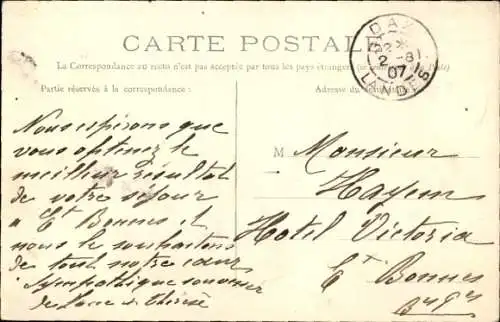 CARTE POSTALE
La Correspondance au recto n'est pas acceptée par tous les pays étrangers (se
Partie réservée à la correspondance :
Adresse du
DAX
2 - 8
07
LANDES
Nous espérons que
vous obtenez le
meilleur résultat
de votre séjour
à Et Bonnes et
nous le souhaitons
de tout notre cœur
Sympathique souvenir
de et Thérèse
M Monsieur
Hayem
Hotel Victoria
Et Bonnes